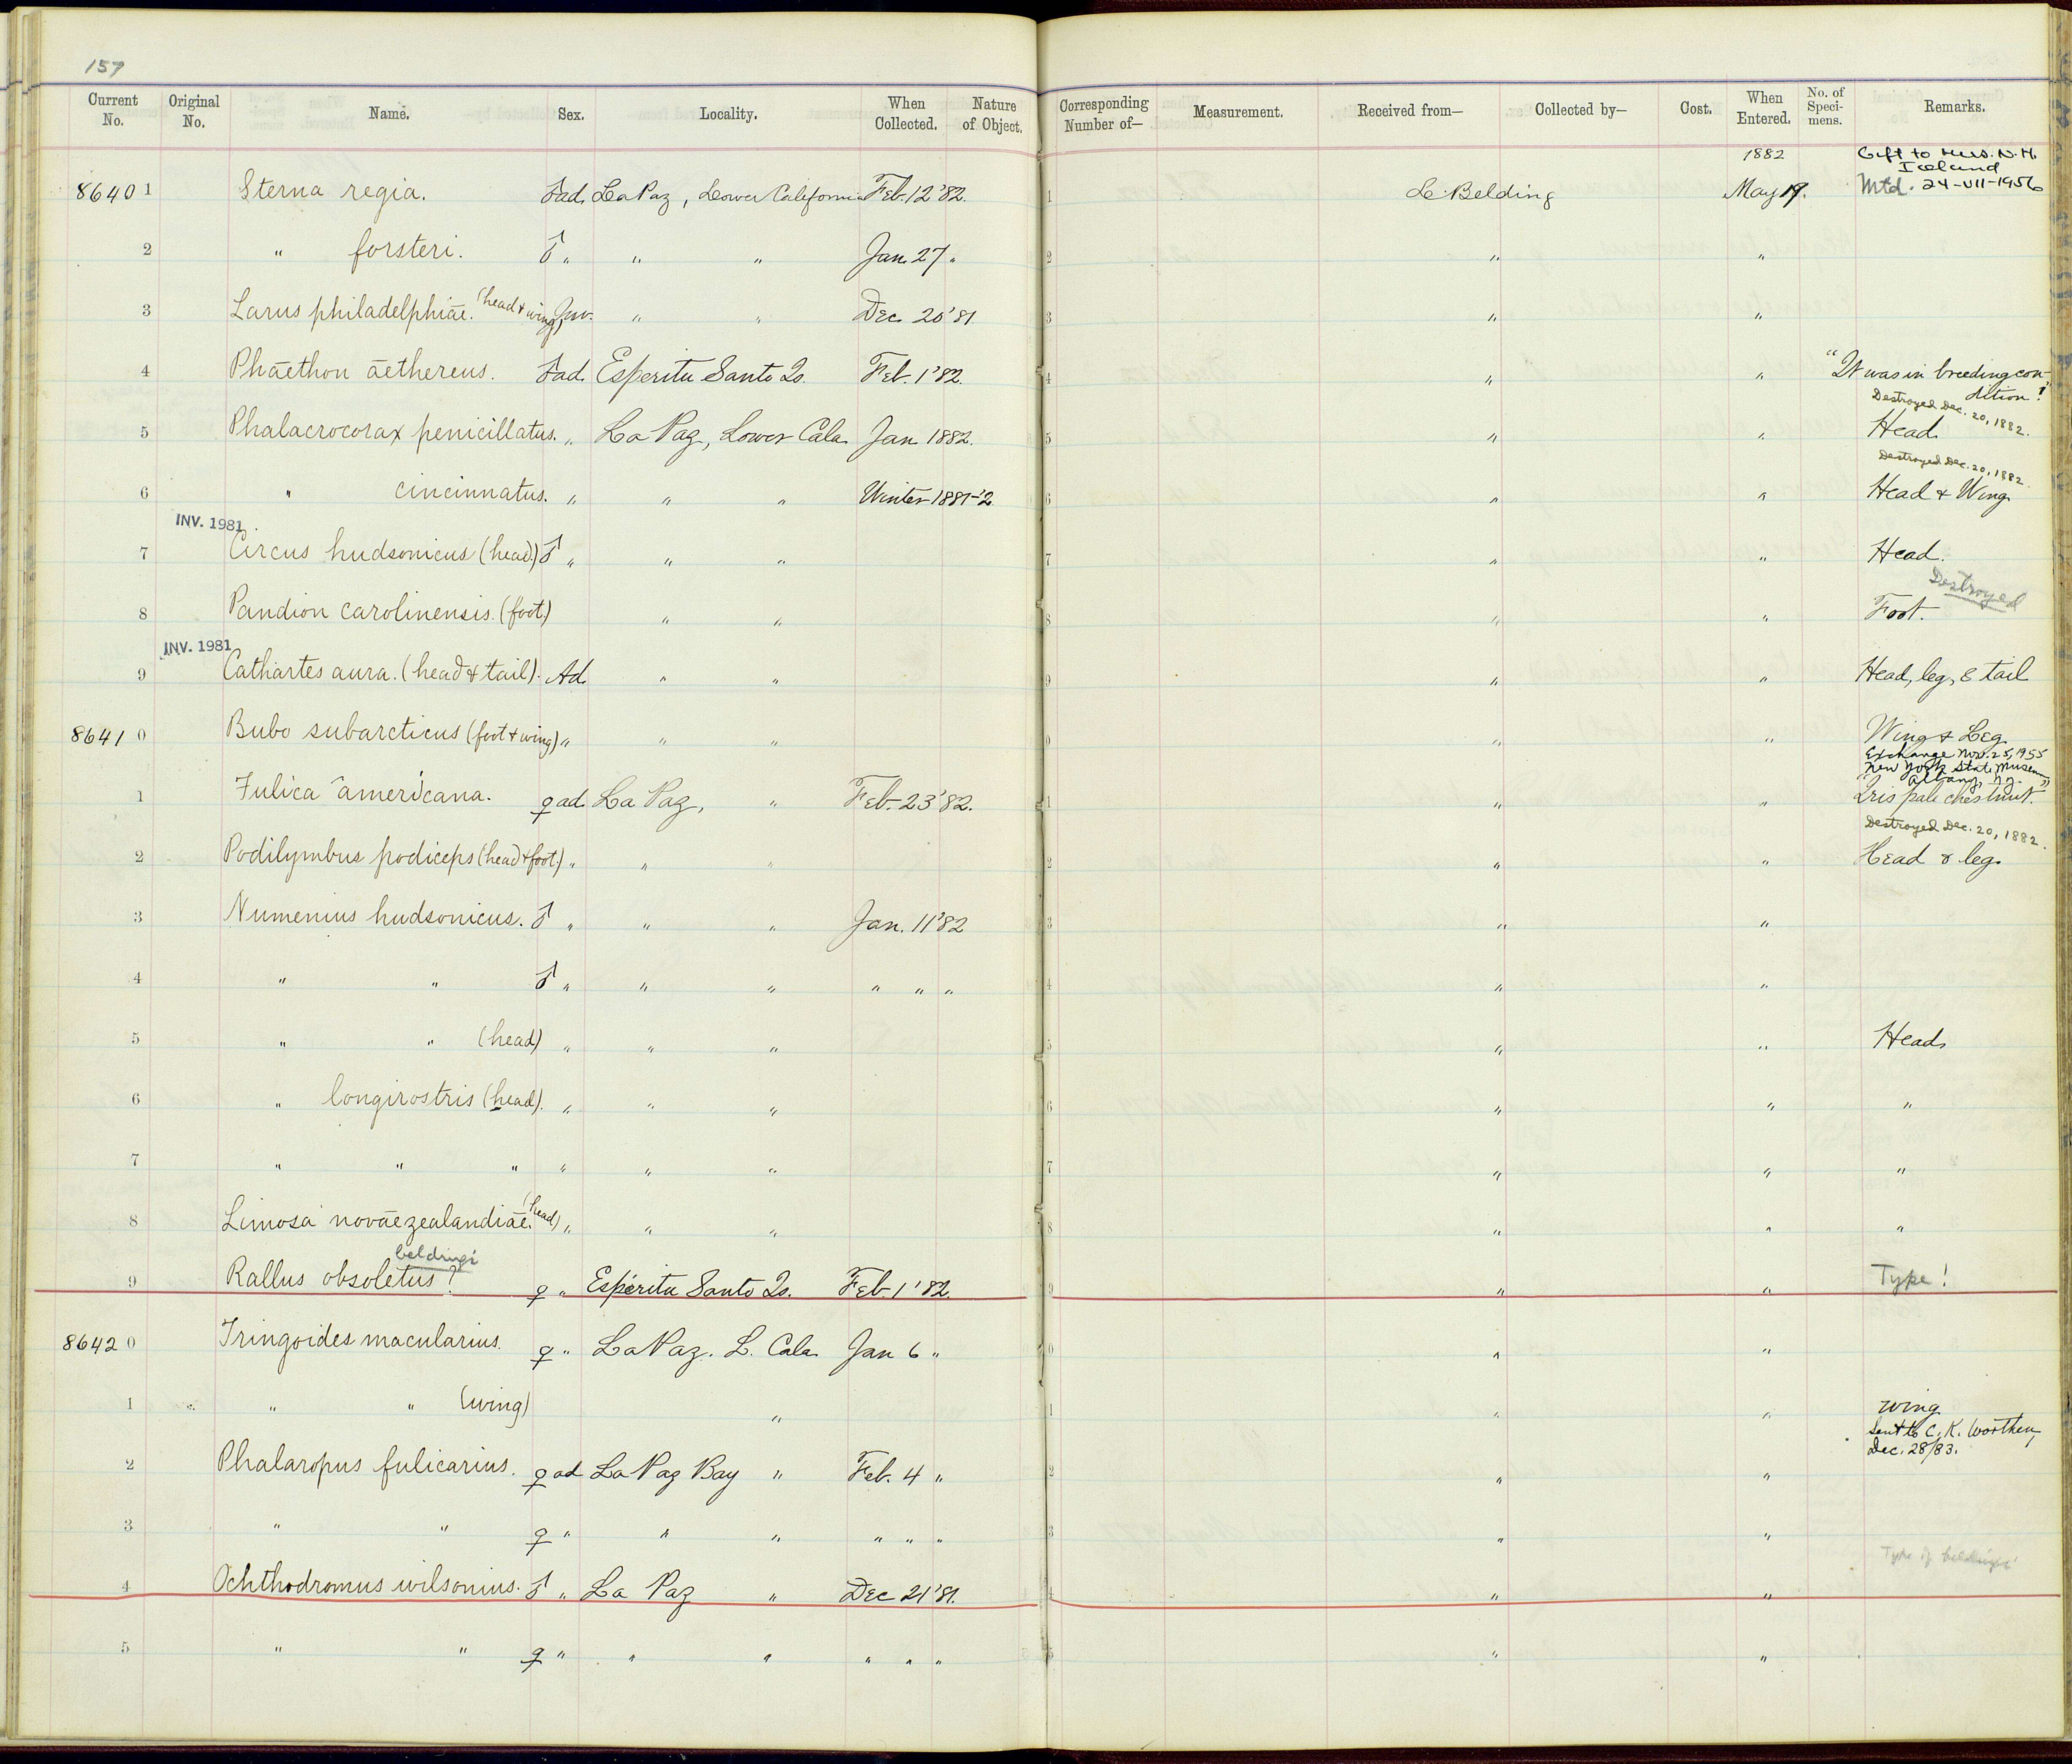 157
Current No. Original No. Name. Sex. Locality. When Collected. Nature of Object. Corresponding Number of— Measurement. Received from— Collected by— Cost. When Entered. No. of Specimens. Remarks.
1882 Gift to Mus. N. H. Iceland
86401 Sterna regia. ♂ ad. La Paz, Lower California Feb. 12 '82. 1 L. Belding May 19. Mtd. 24-VII-1956
2 " forsteri. ♂ " " " Jan. 27 " 2 " "
3 Larus philadelphiæ. (head & wing) Juv. " " Dec. 20 '81 3 " "
4 Phaethon æthereus. ♂ ad. Esperitu Santo Is. Feb. 1 '82. 4 " " "It was in breeding condition!"
Destroyed Dec. 20, 1882.
5 Phalacrocorax penicillatus. " La Paz, Lower Cala. Jan 1882. 5 " " Head
Destroyed Dec. 20, 1882.
6 " cincinnatus. " " " Winter 1881-'2 6 " " Head & Wing
INV. 1981
7 Circus hudsonicus (head) ♂ " " " 7 " " Head.
Destroyed
8 Pandion carolinensis. (foot) " " 8 " " Foot.
INV. 1981
9 Cathartes aura. (head & tail). Ad. " " 9 " " Head, leg, & tail
86410 Bubo subarcticus (foot & wing) " " " 0 " " Wing & Leg
Exchange Nov. 25, 1955
New York State Museum,
Albany, N.Y.
1 Fulica americana. ♀ ad. La Paz, " Feb. 23 '82. 1 " " Iris pale chestnut."
Destroyed Dec. 20, 1882.
2 Podilymbus podiceps (head & foot.) " " " 2 " " Head & leg.
3 Numenius hudsonicus. ♂ " " " Jan. 11 '82 3 " "
4 " " ♂ " " " " " " 4 " "
5 " " (head) " " " 5 " " Head
6 " longirostris (head). " " " 6 " " "
7 " " " " " " 7 " " "
8 Limosa novæzealandiæ. (head) " " " 8 " " "
beldingi
9 Rallus obsoletus? ♀ " Esperitu Santo Is. Feb. 1 '82. 9 " " Type!
86420 Tringoides macularius. ♀ " La Paz. L. Cala. Jan 6 " 0 " "
1 " " " (wing) " 1 " " wing
Sent to C. K. Worthen,
Dec. 28/83.
2 Phalaropus fulicarius. ♀ ad La Paz Bay " Feb. 4 " 2 " "
3 " " ♀ " " " " " " 3 " "
Type of beldingi
4 Ochthodromus wilsonius. ♂ " La Paz " Dec 21 '81. 4 " "
5 " " ♀ " " " " " " 5 " "